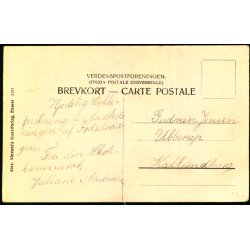 VERDENSPOSTFORENINGEN.
(UNION POSTALE UNIVERSELLE)
BREVKORT — CARTE POSTALE
Hjertelig Lykke-
ønskning i Anledn
ningen af Fødselsda-
gen.
Fra din Skole-
kammerat,
Juliane Andersen
Gudrun Jensen
Ubberup
Kallundborg
Alex. Vincent's Kunstforlag, Eneret